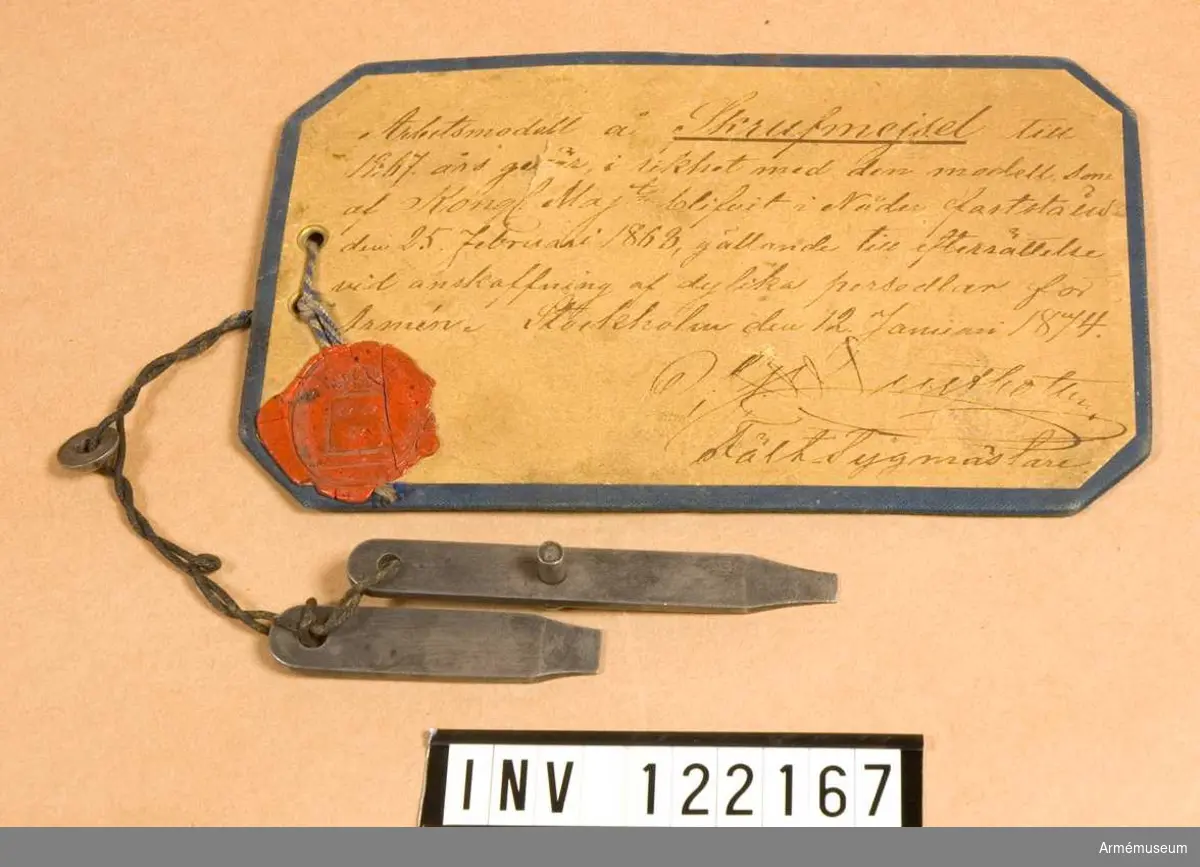 Arbetsmodell å Skrufmejsel till
1867 års gevär, i likhet med den modell, som
af Kongl. Maj:t blifvit i Nåder fastställd
den 25. Februari 1868, gällande till efterrättelse
vid anskaffning af dylika persedlar för
Armén. Stockholm den 12. Januari 1874.
Fält-Tygmästare
INV 122167
Armémuseum